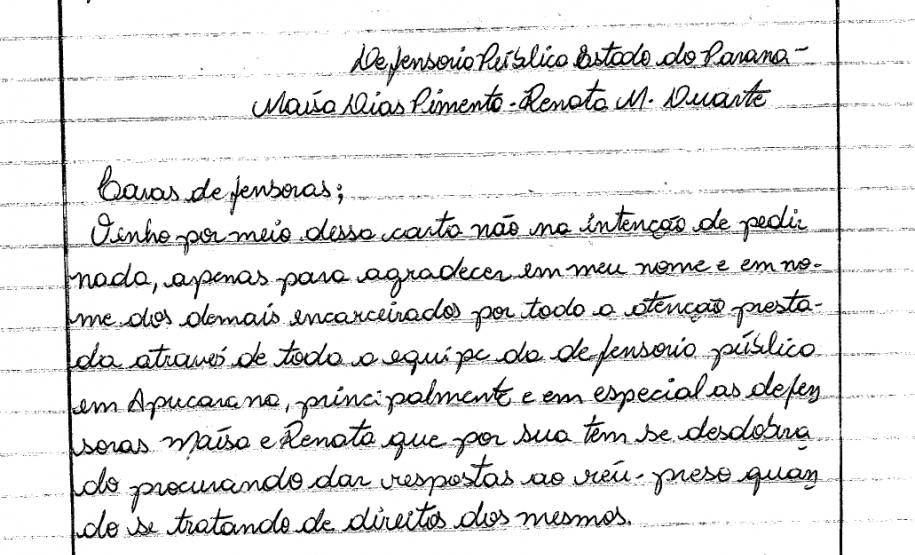 Defensoria Pública Estado do Parana -
Maísa Dias Pimenta - Renata M. Duarte
Caras defensoras;
Venho por meio dessa carta não na intenção de pedir
nada, apenas para agradecer em meu nome e em no-
me dos demais encarceirados por toda a atenção presta-
da através de toda a equipe da defensoria pública
em Apucarana, principalmente e em especial as defen
soras Maísa e Renata que por sua tem se desdobra
do procurando dar respostas ao réu-preso quan
do se tratando de direitos dos mesmos.